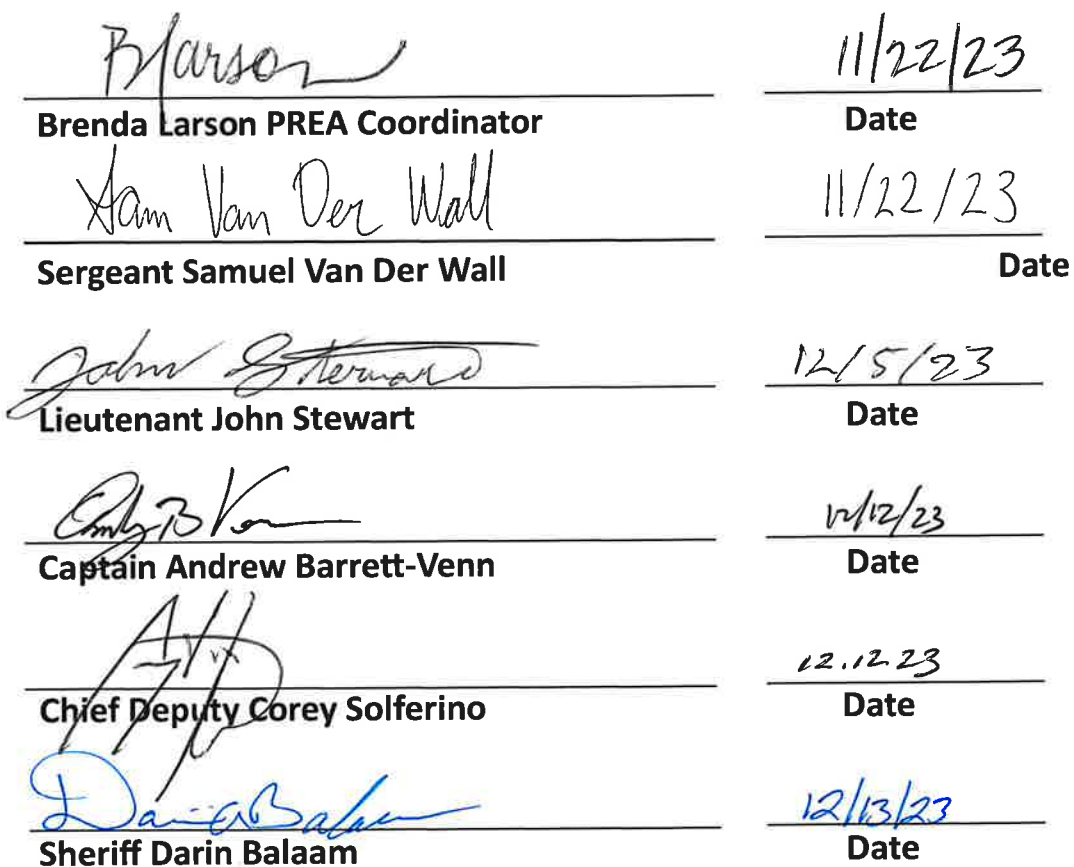 BLarson 11/22/23
Brenda Larson PREA Coordinator Date
Sam Van Der Wall 11/22/23
Sergeant Samuel Van Der Wall Date
John Stewart 12/5/23
Lieutenant John Stewart Date
12/12/23
Captain Andrew Barrett-Venn Date
12.12.23
Chief Deputy Corey Solferino Date
Darin Balaam 12/13/23
Sheriff Darin Balaam Date